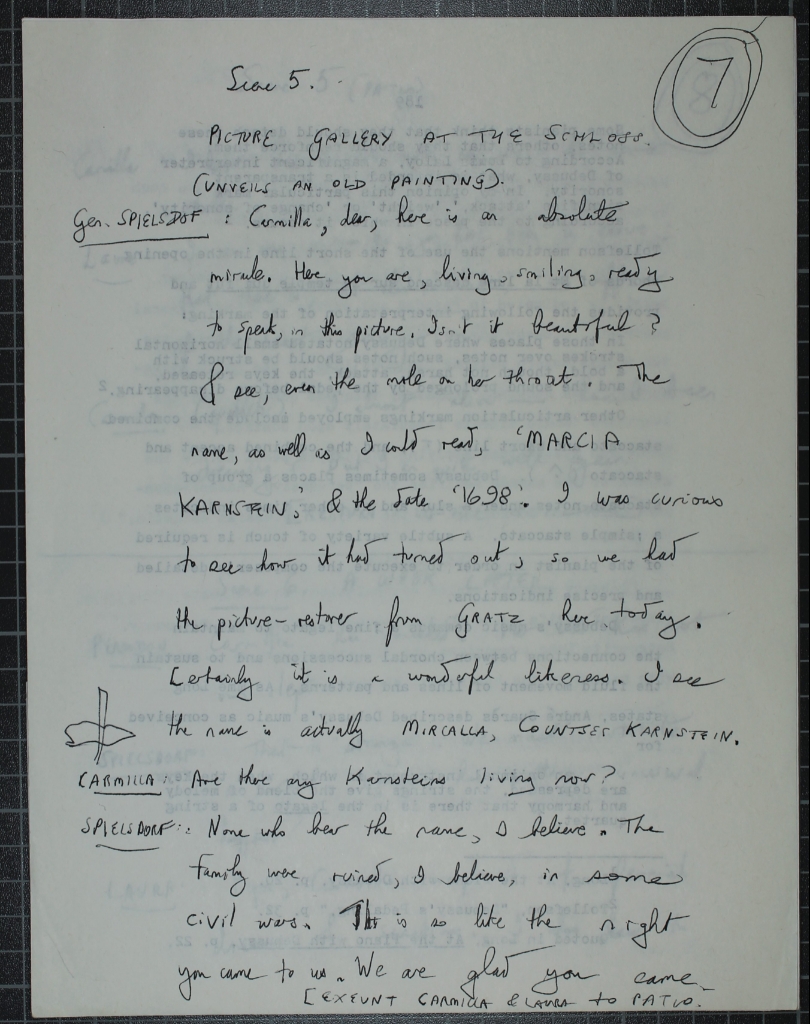 7
Scene 5.
PICTURE GALLERY AT THE SCHLOSS.
(UNVEILS AN OLD PAINTING).
Gen. SPIELSDOF : Carmilla, dear, here is an absolute
miracle. Here you are, living, smiling, ready
to speak, in this picture. Isn't it beautiful?
& see, even the mole on her throat. The
name, as well as I could read, 'MARCIA
KARNSTEIN', & the date '1698'. I was curious
to see how it had turned out, so we had
the picture-restorer from GRATZ here today.
Certainly it is a wonderful likeness. I see
the name is actually MIRCALLA, COUNTSES KARNSTEIN.
CARMILLA: Are there any Karnsteins living now?
SPIELSDORF: None who bear the name, I believe. The
family were ruined, I believe, in some
civil wars. This is so like the night
you came to us. We are glad you came.
[EXEUNT CARMILLA & LAURA to PATIO.